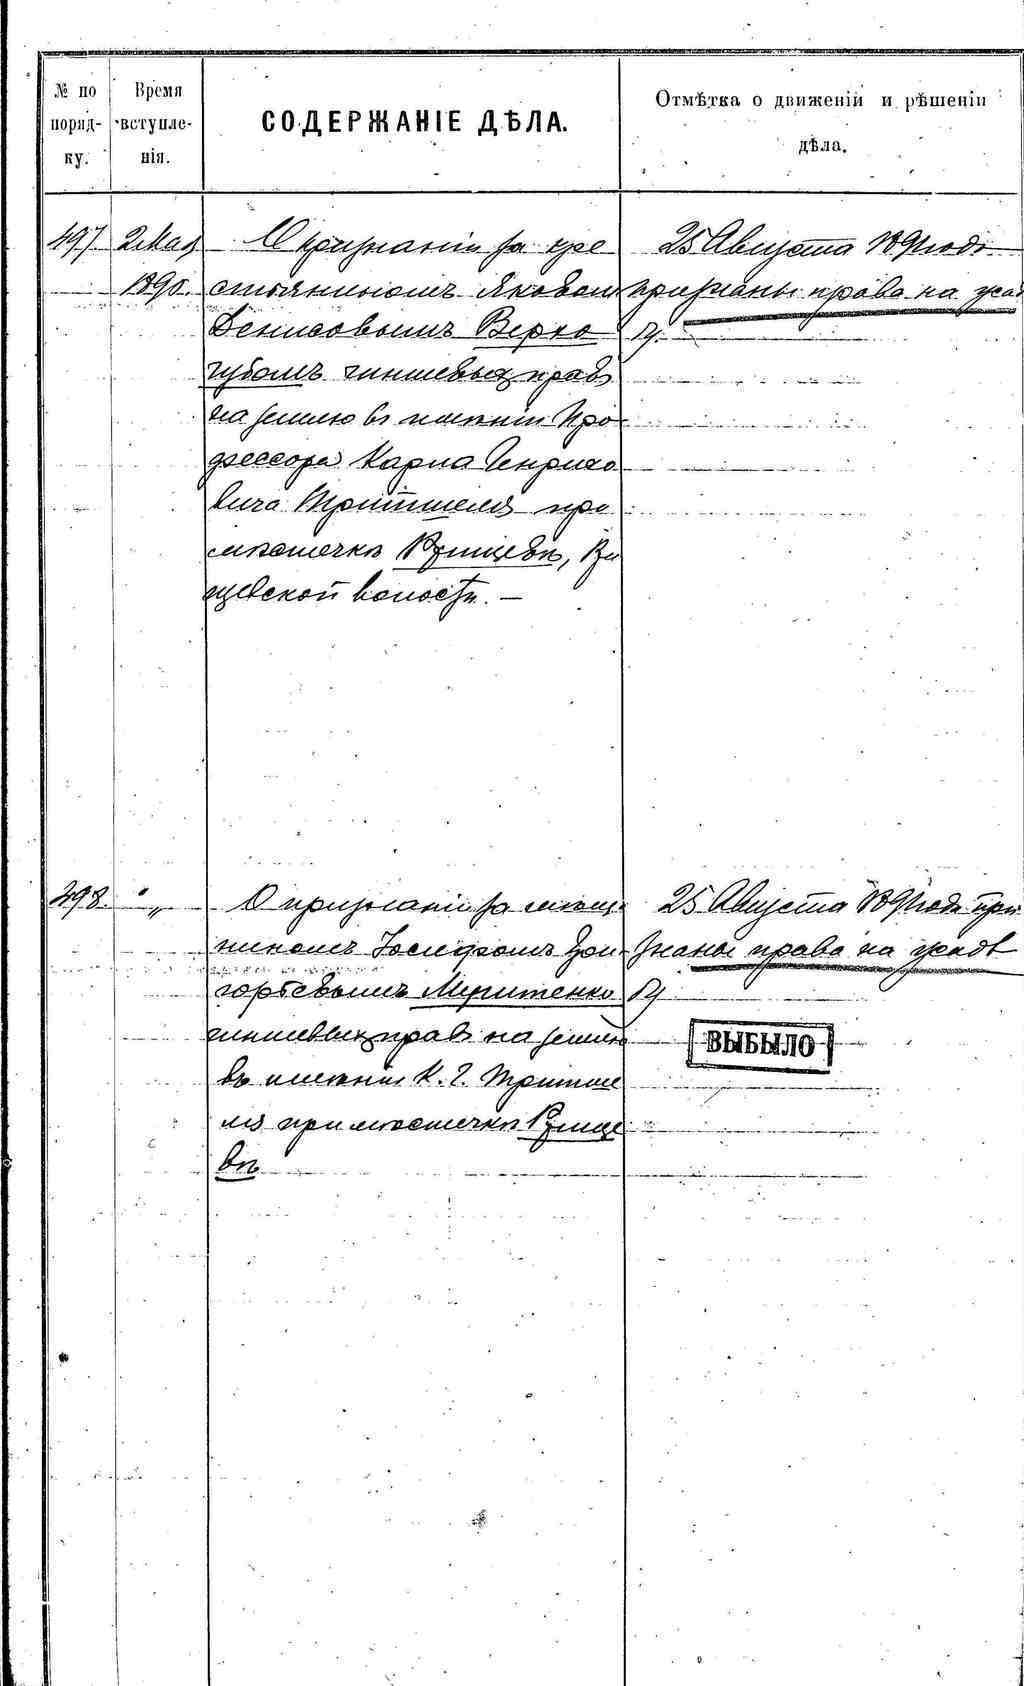 № по поряд-ку.
Время вступле-нія.
СОДЕРЖАНІЕ ДѢЛА.
Отмѣтка о движеніи и рѣшеніи дѣла.
497 2 Мая О признаніи за кре
1890. стьяниномъ Яковомъ
Денисовымъ Верхо
губомъ чиншевыхъ правъ
на землю въ имѣніи Про
фессора Карла Генрихо
вича Тритшеля при
мѣстечкѣ Ржищевѣ, Ржи
щевской волости. —
25 Августа 1891 года
признаны права на усад
498. " О признаніи за мѣщ
ниномъ Іосифомъ Гри
горьевымъ
чиншевыхъ правъ на землю
въ имѣніи К. Г. Тритше
ля при мѣстечкѣ Ржище
вѣ
25 Августа 1891 года при
знаны права на усадь
ВЫБЫЛО